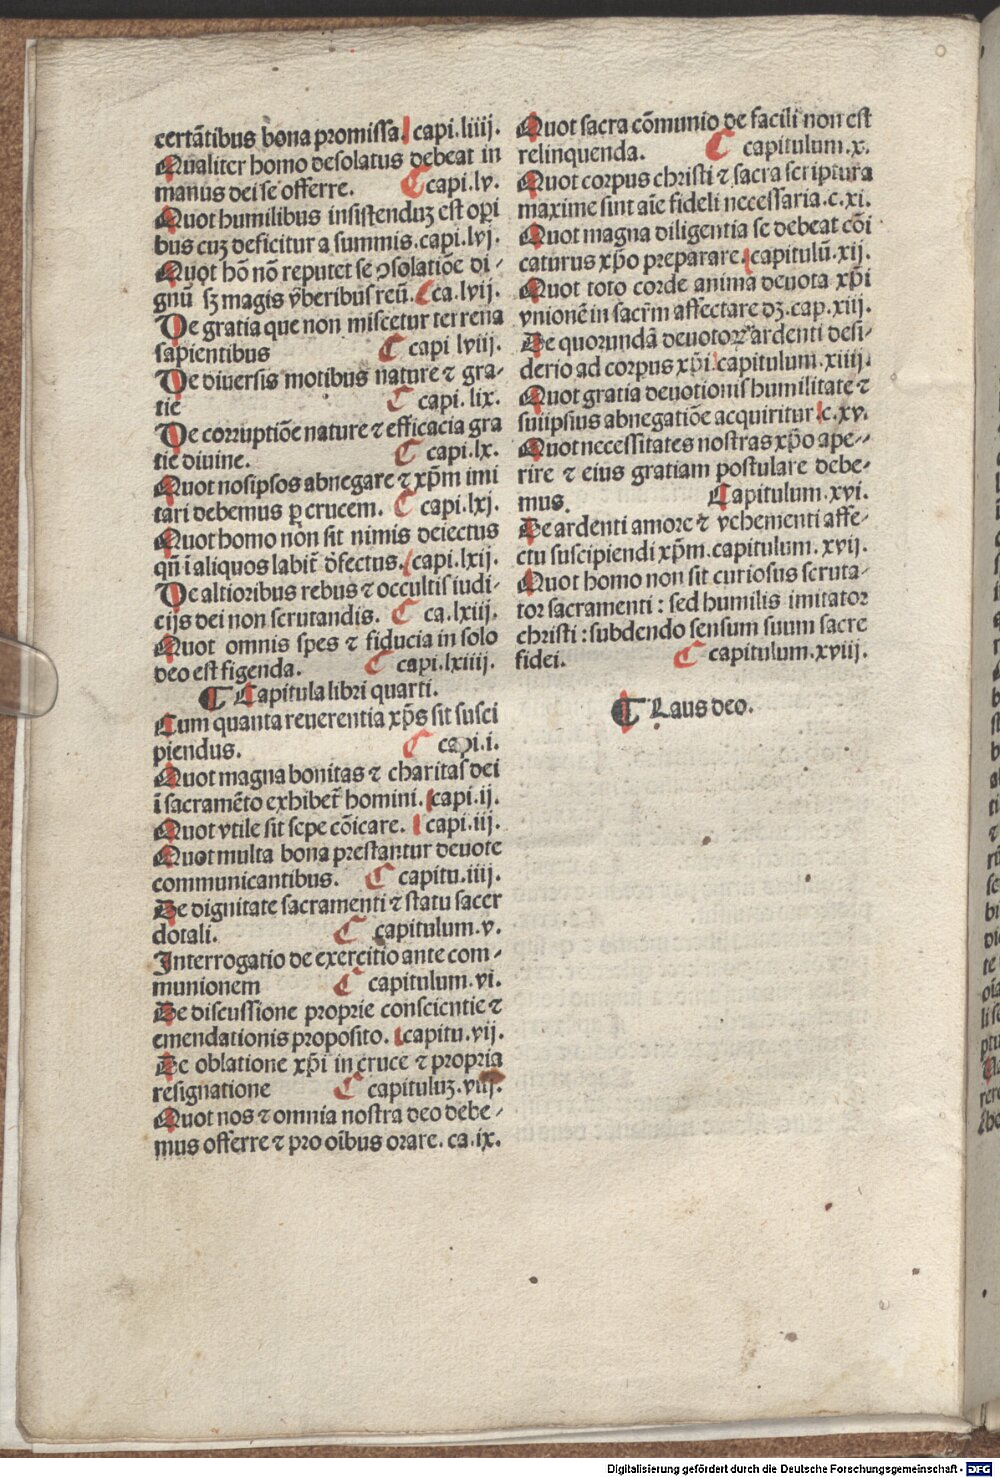 certãtibus bona promissa. capi.liiij.
Qualiter homo desolatus debeat in
manus dei se offerre. capi.lv.
Quot humilibus insistenduꝫ est oꝑi
bus cuꝫ deficitur a summis.capi.lvj.
Quot hõ nõ reputet se ꝯsolatiõe di-
gnũ sꝫ magis v̾beribus reũ. ca.lvij.
De gratia que non miscetur terrena
sapientibus capi lviij.
De diuersis motibus nature ⁊ gra-
tie capi.lix.
De corruptiõe nature ⁊ efficacia gra
tie diuine. capi.lx.
Quot nosipsos abnegare ⁊ xp̄m imi
tari debemus ꝑ crucem. capi.lxj.
Quot homo non sit nimis deiectus
qñ ĩ aliquos labit̃ d̾fectus. capi.lxij.
De altioribus rebus ⁊ occultis iudi-
cijs dei non scrutandis. ca.lxiij.
Quot omnis spes ⁊ fiducia in solo
deo est figenda. capi.lxiiij.
Capitula libri quarti.
Cum quanta reuerentia xp̄s sit susci
piendus. capi.i.
Quot magna bonitas ⁊ charitas dei
ĩ sacramẽto exhibet̃ homini. capi.ij.
Quot vtile sit sepe cõicare. capi.iij.
Quot multa bona prestantur deuote
communicantibus. capitu.iiij.
De dignitate sacramenti ⁊ statu sacer
dotali. capitulum.v.
Interrogatio de exercitio ante com-
munionem capitulum.vi.
De discussione proprie conscientie ⁊
emendationis proposito. capitu.vij.
De oblatione xp̄i in cruce ⁊ propria
resignatione capituluꝫ.viij.
Quot nos ⁊ omnia nostra deo debe-
mus offerre ⁊ pro oĩbus orare. ca.ix.
Quot sacra cõmunio de facili non est
relinquenda. capitulum.x.
Quot corpus christi ⁊ sacra scriptura
maxime sint aĩe fideli necessaria.c.xi.
Quot magna diligentia se debeat cõi
caturus xp̄o preparare. capitulũ.xij.
Quot toto corde anima deuota xp̄i
vnionẽ in sacr̃m affectare dꝫ.cap.xiii.
De quorundã deuotoꝝ ardenti desi-
derio ad corpus xp̄i capitulum.xiiij.
Quot gratia deuotionis humilitate ⁊
suiipsius abnegatiõe acquiritur.c.xv.
Quot necessitates nostras xp̄o ape-
rire ⁊ eius gratiam postulare debe-
mus. Capitulum.xvi.
De ardenti amore ⁊ vehementi affe-
ctu suscipiendi xp̄m.capitulum.xvij.
Quot homo non sit curiosus scruta-
tor sacramenti : sed humilis imitator
christi : subdendo sensum suum sacre
fidei. capitulum.xviij.
Laus deo.
Digitalisierung gefördert durch die Deutsche Forschungsgemeinschaft - DFG